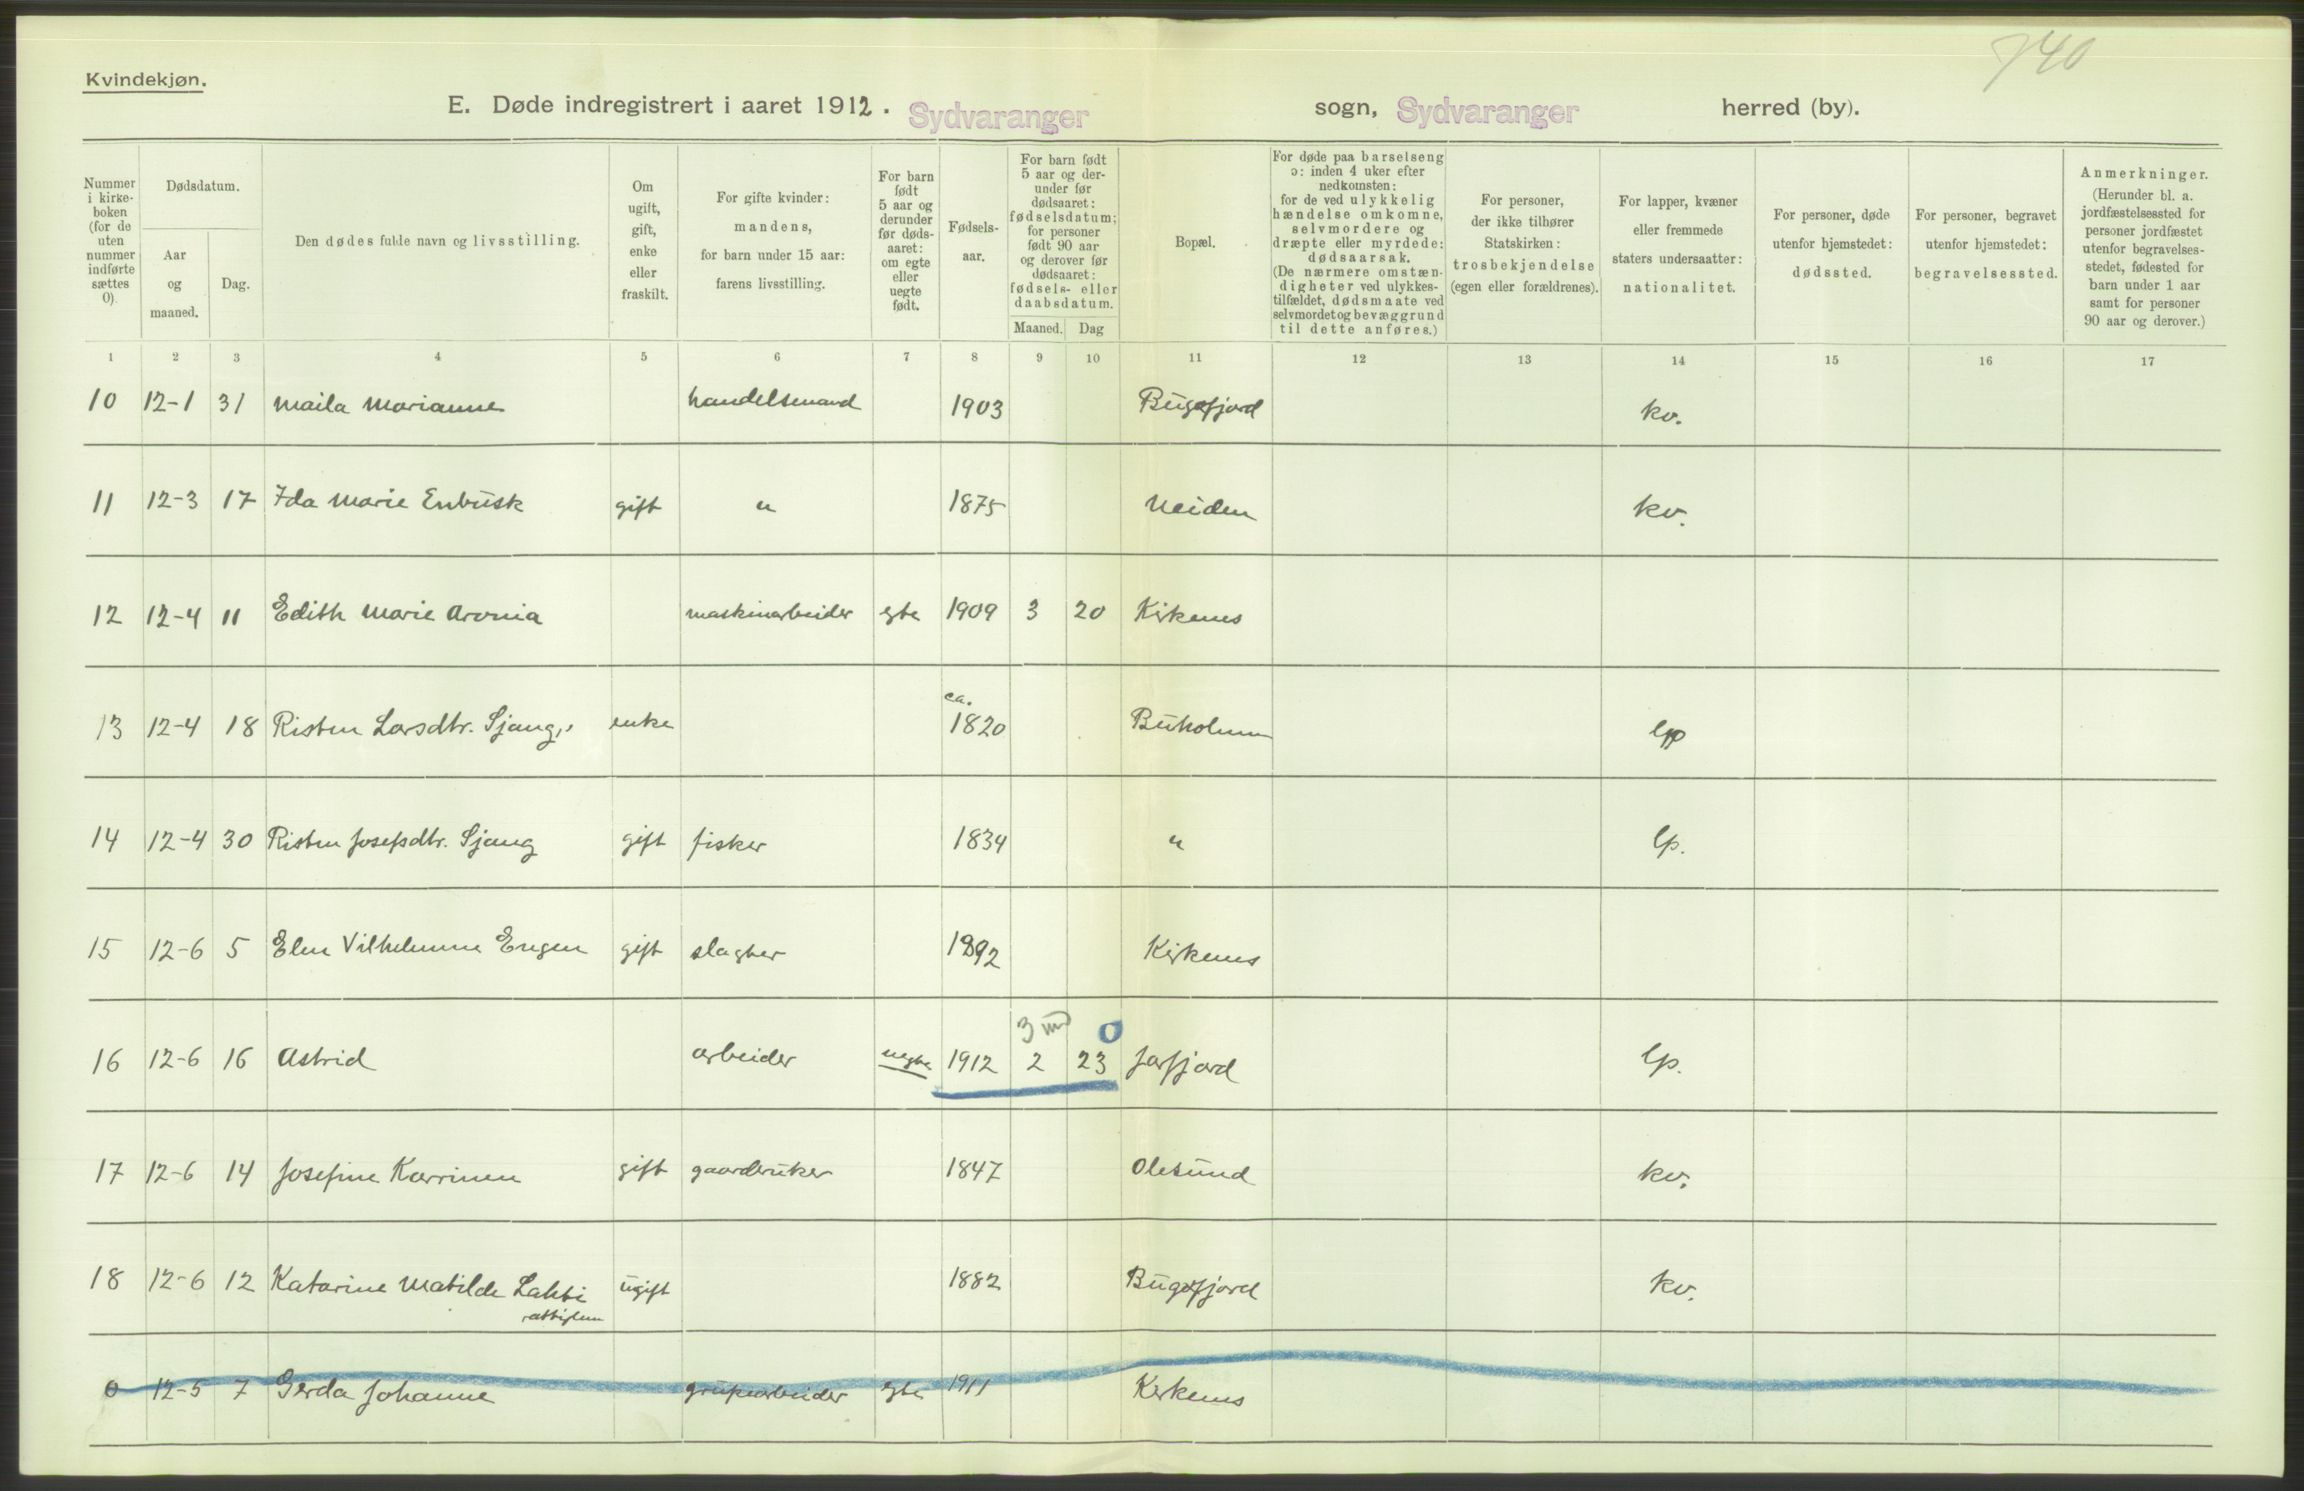 740
Kvindekjøn.
E. Døde indregistrert i aaret 1912. Sydvaranger sogn, Sydvaranger herred (by).
Nummer i kirke-boken (for de uten nummer indførte sættes 0)
Dødsdatum.
Aar og maaned.
Dag.
Den dødes fulde navn og livsstilling.
Om ugift, gift, enke eller fraskilt.
For gifte kvinder: mandens, for barn under 15 aar: farens livsstilling.
For barn født 5 aar og derunder før døds-aaret: om egte eller uegte født.
Fødsels-aar.
For barn født 5 aar og der-under før dødsaaret: fødselsdatum; for personer født 90 aar og derover før dødsaaret: fødsels- eller daabsdatum.
Maaned. Dag
Bopæl.
For døde paa barselseng ɔ: inden 4 uker efter nedkomsten: for de ved ulykkelig hændelse omkomne, selvmordere og dræpte eller myrdede: dødsaarsak. (De nærmere omstæn-digheter ved ulykkes-tilfældet, dødsmaate ved selvmordet og bevæggrund til dette anføres.)
For personer, der ikke tilhører Statskirken: trosbekjendelse (egen eller forældrenes).
For lapper, kvæner eller fremmede staters undersaatter: nationalitet.
For personer, døde utenfor hjemstedet: dødssted.
For personer, begravet utenfor hjemstedet: begravelsessted.
Anmerkninger. (Herunder bl. a. jordfæstelsessted for personer jordfæstet utenfor begravelses-stedet, fødested for barn under 1 aar samt for personer 90 aar og derover.)
1 2 3 4 5 6 7 8 9 10 11 12 13 14 15 16 17
10 12-1 31 Maila Marianne handelsmand 1903 Bugøfjord kv.
11 12-3 17 Ida Marie Enbusk gift " 1875 Neiden kv.
12 12-4 11 Edith Marie Aronia maskinarbeider egte 1909 3 20 Kirkenes
13 12-4 18 Risten Larsdtr. Sjang, enke ca. 1820 Buholmen lp
14 12-4 30 Risten Josefsdtr. Sjang gift fisker 1834 " lp.
15 12-6 5 Elen Vilhelmine Engen gift slagter 1892 Kirkenes
3 md 0
16 12-6 16 Astrid arbeider uegte 1912 2 23 Jarfjord lp.
17 12-6 14 Josefine Karrinen gift gaardbruker 1847 Olesund kv.
18 12-6 12 Katarine Matilde Lahti ugift 1882 Bugøfjord kv.
0 12-5 7 Gerda Johanne grubearbeider egte 1911 Kirkenes